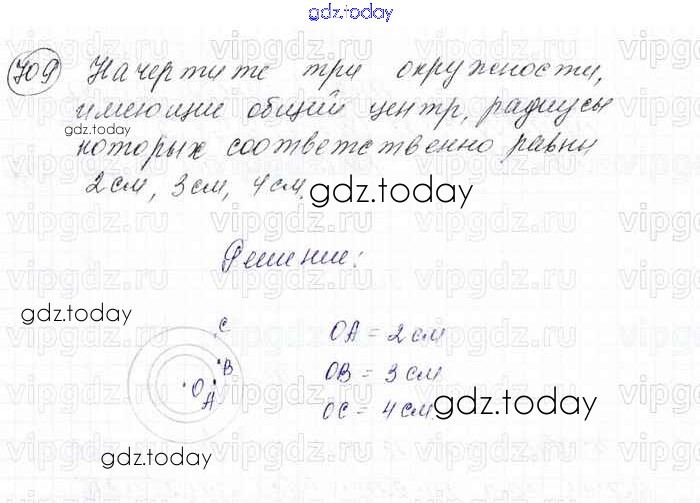 gdz.today
709 Начертите три окружности,
имеющие общий центр, радиусы
gdz.today
которых соответственно равны
2 см, 3 см, 4 см.
gdz.today
Решение:
gdz.today
C
OA = 2 см
B
OB = 3 см
O
A
OC = 4 см
gdz.today
gdz.today
vipgdz.ru